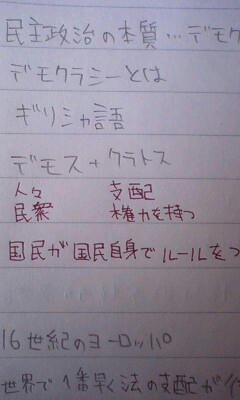 民主政治の本質…デモク
デモクラシーとは
ギリシャ語
デモス+クラトス
人々 支配
民衆 権力を持つ
国民が国民自身でルールをつ
16世紀のヨーロッパ
世界で1番早く法の支配が行